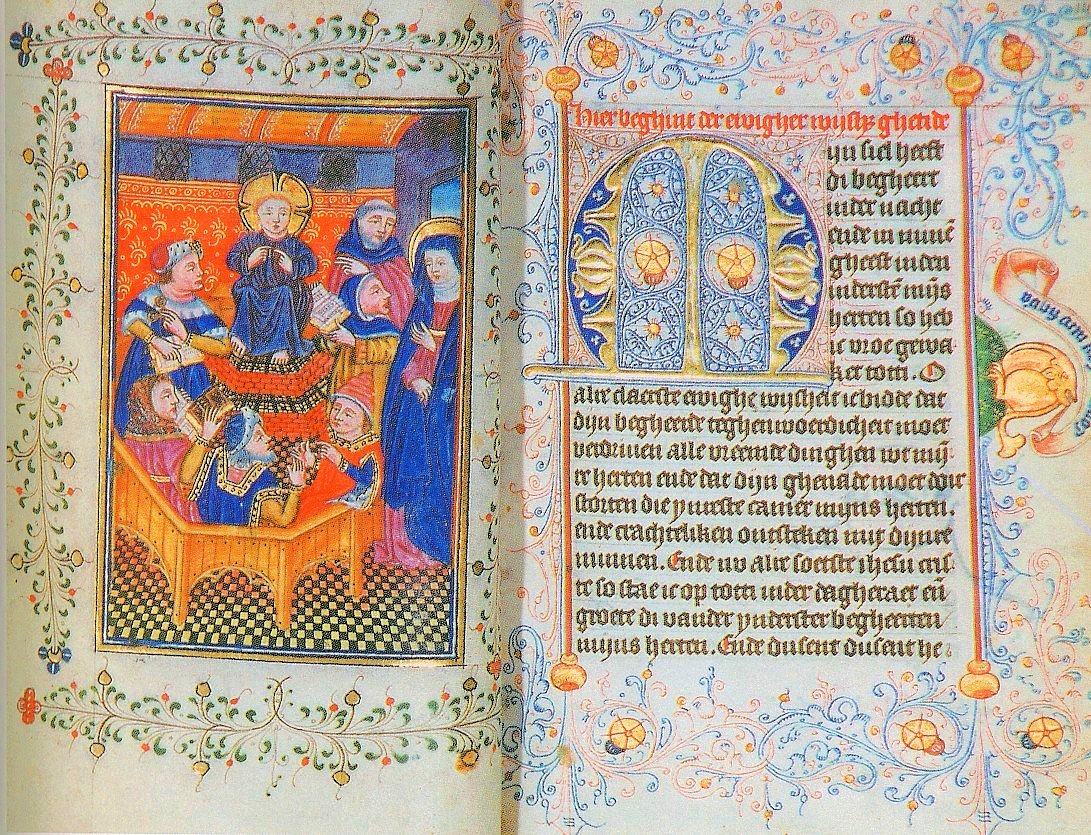 Hier beghint der ewigher wijsh' ghetide
Mijn siel heeft
di begheert
inder nacht
ende in minē
gheest in den
inderstē mijns
herten so heb
ic vroe gewa
ket totti. O
alre claerste ewighe wijsheit ic bidde dat
dijn begheerde teghenwoerdicheit moet
verdriven alle vreemde dinghen wt mijn
re herten ende dat dijn ghenade moet doir
storten die ynreste camer mijns herten.
ende crachteliken ontsteken mit dijnre
minnen. Ende nu alre soetste ihesu cris
te so stae ic op totti inder dagheraet eñ
groete di vander ynderster begheerten
mijns herten. Ende dusent dusent he